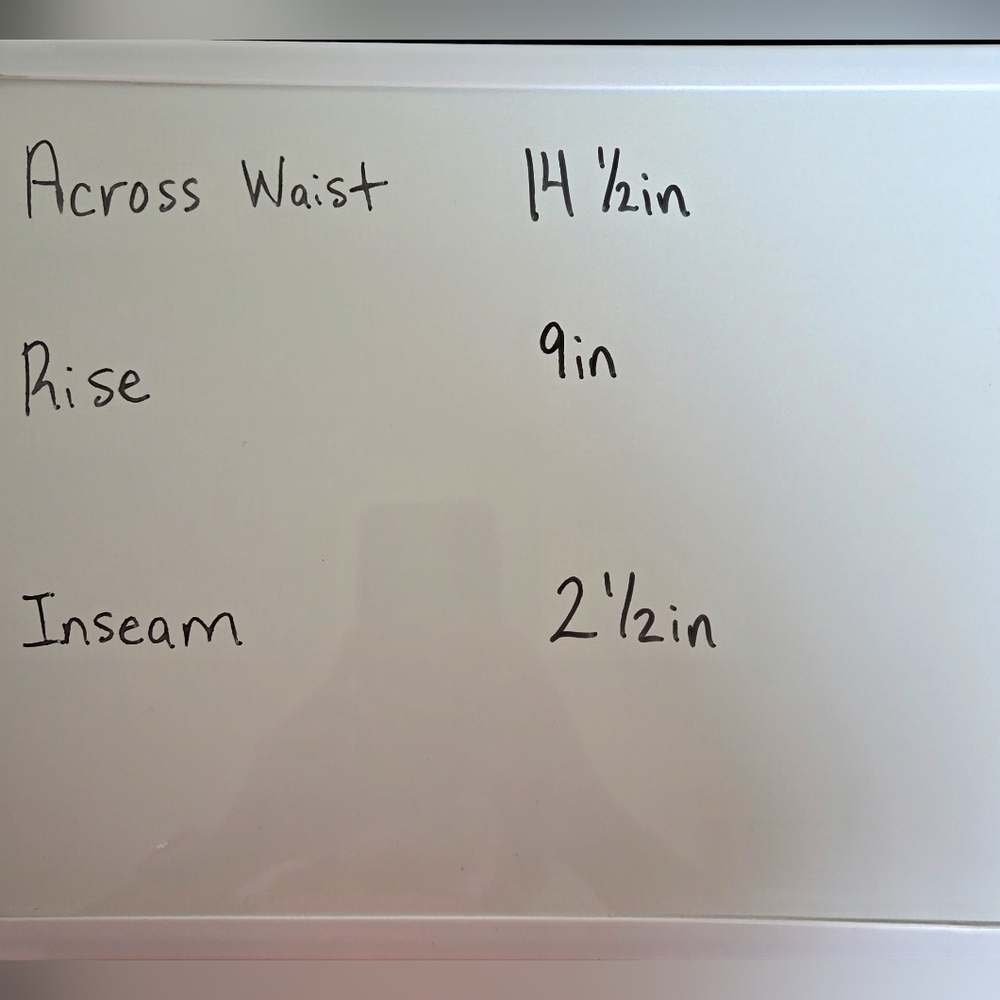 Across Waist 14 1/2in
Rise 9in
Inseam 2 1/2in